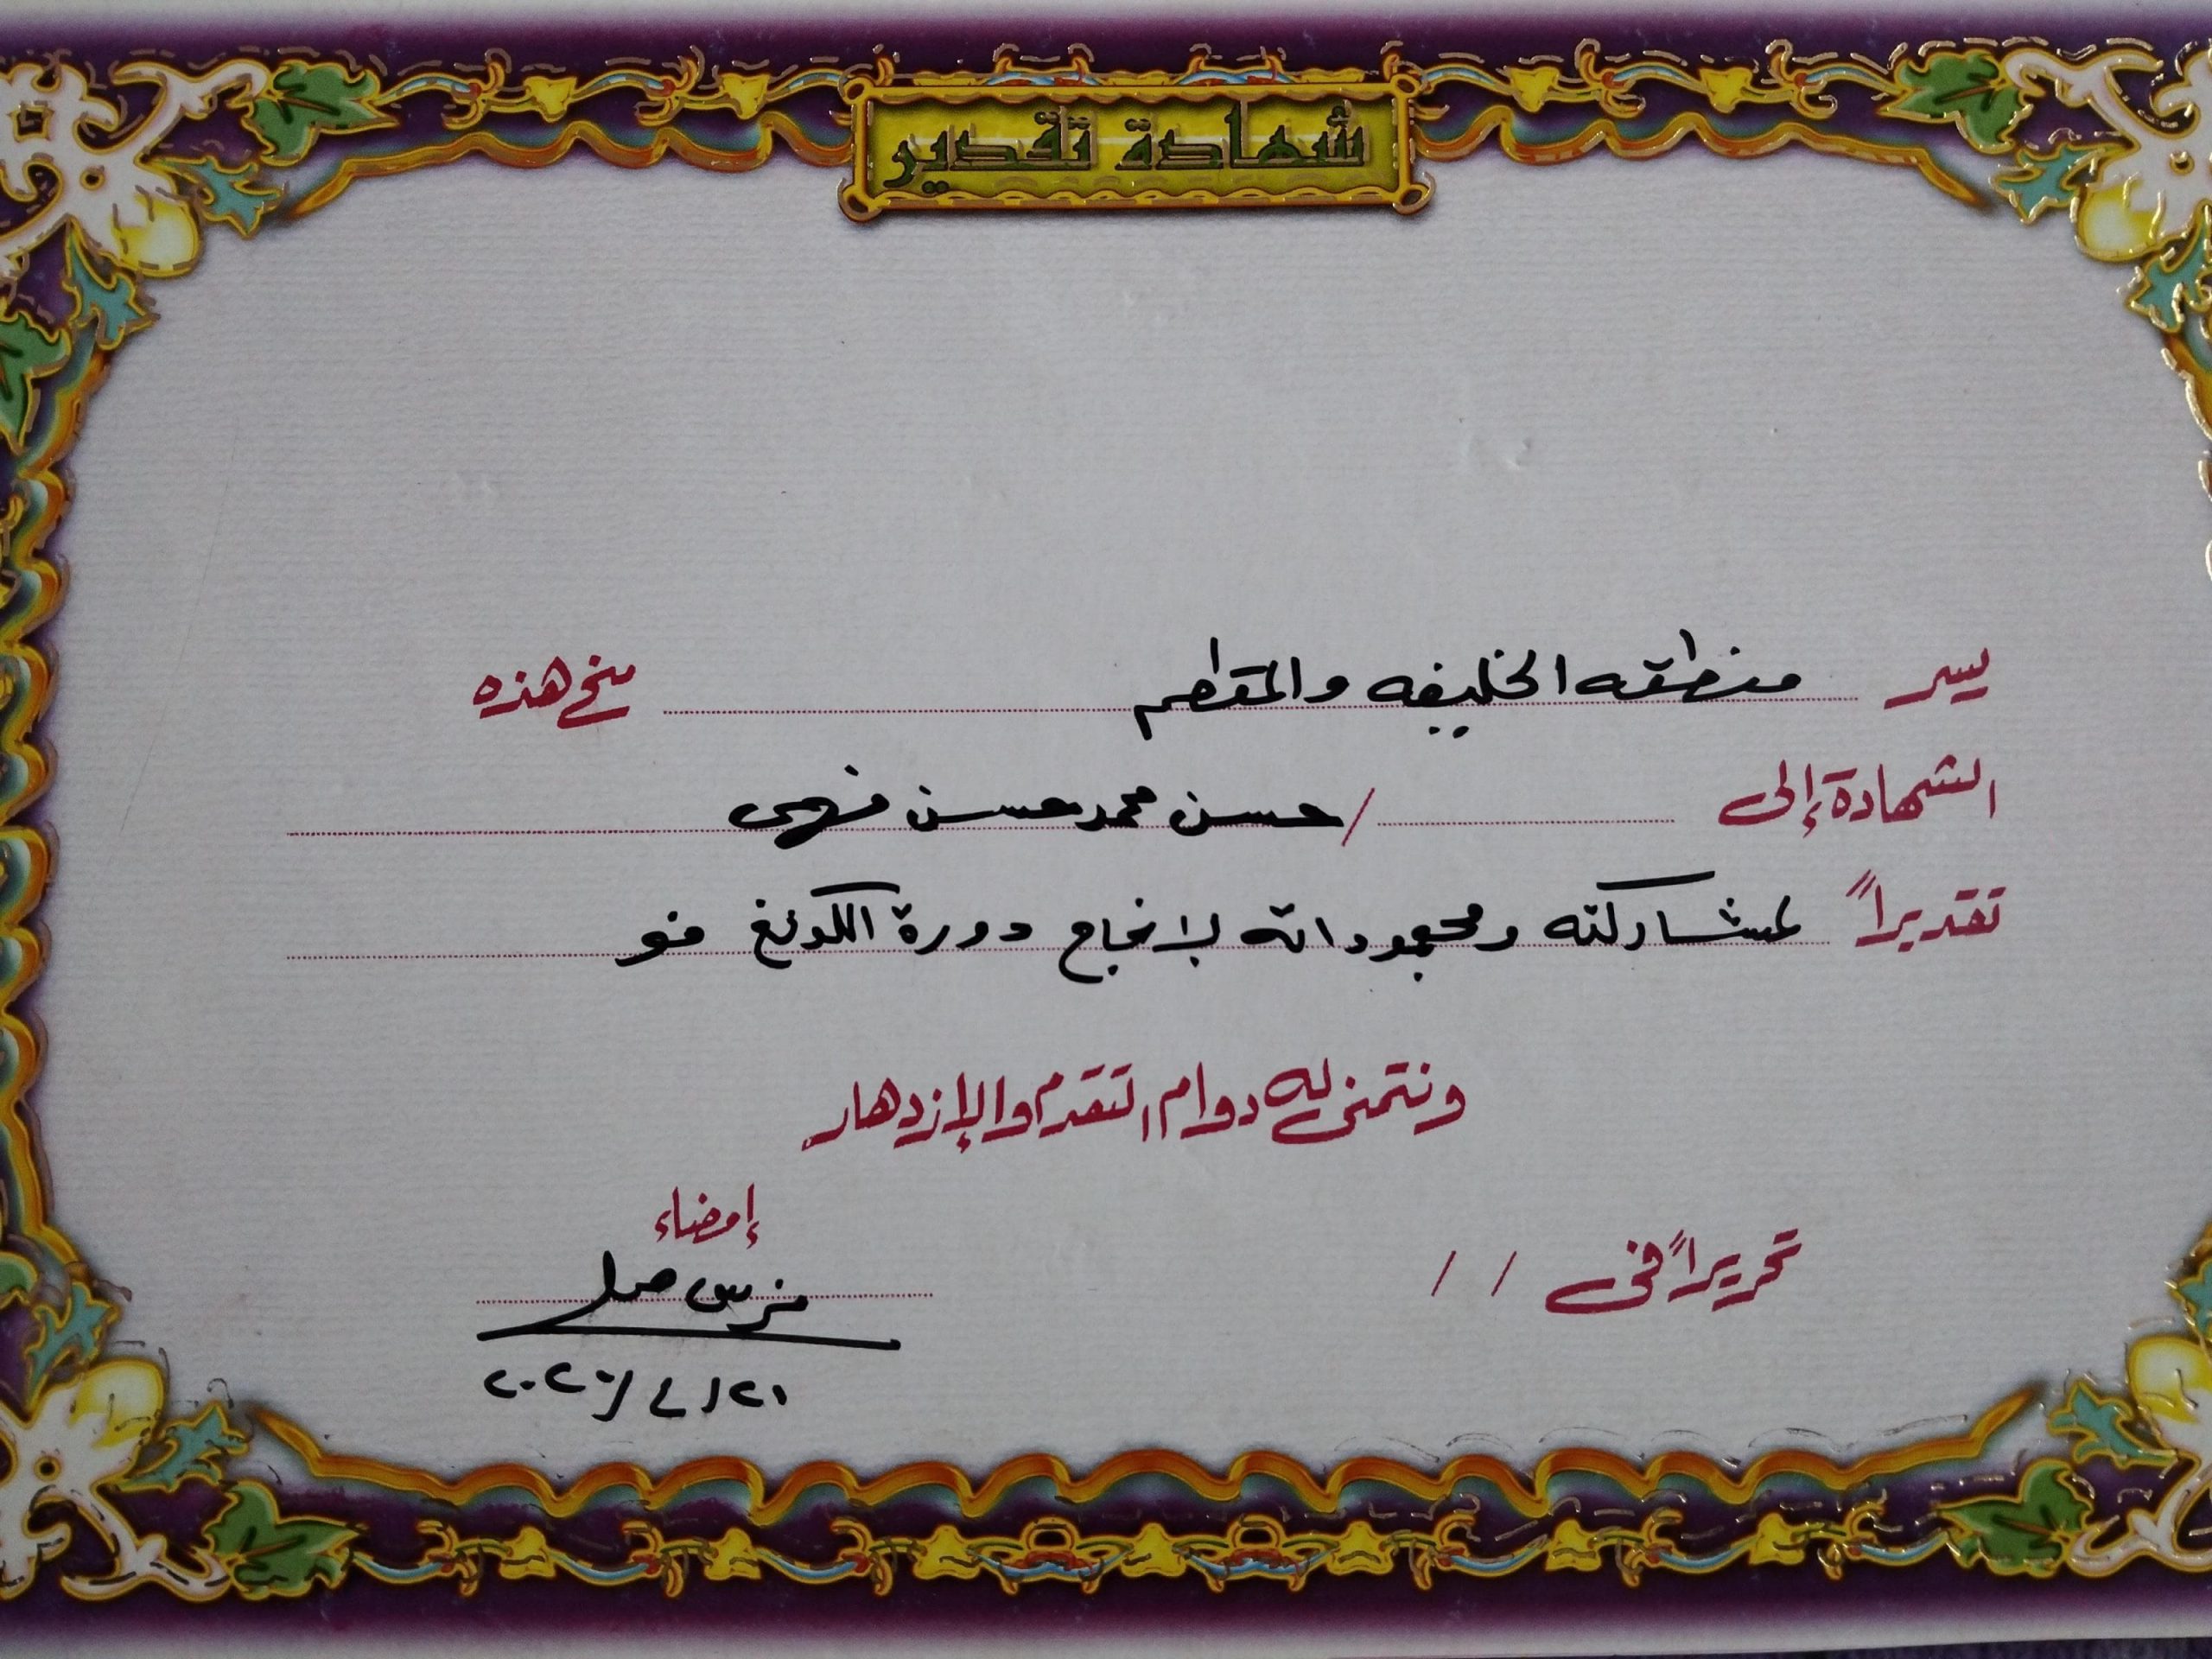 شهادة تقدير
يسر منطقه الخليفه والمقطم منح هذه
الشهادة إلى / حسن محمد حسن فهمى
تقديراً لمشاركته ومجهوداته لإنجاح دورة الكونغ فو
ونتمنى له دوام التقدم والإزدهار
تحريراً فى / /
إمضاء